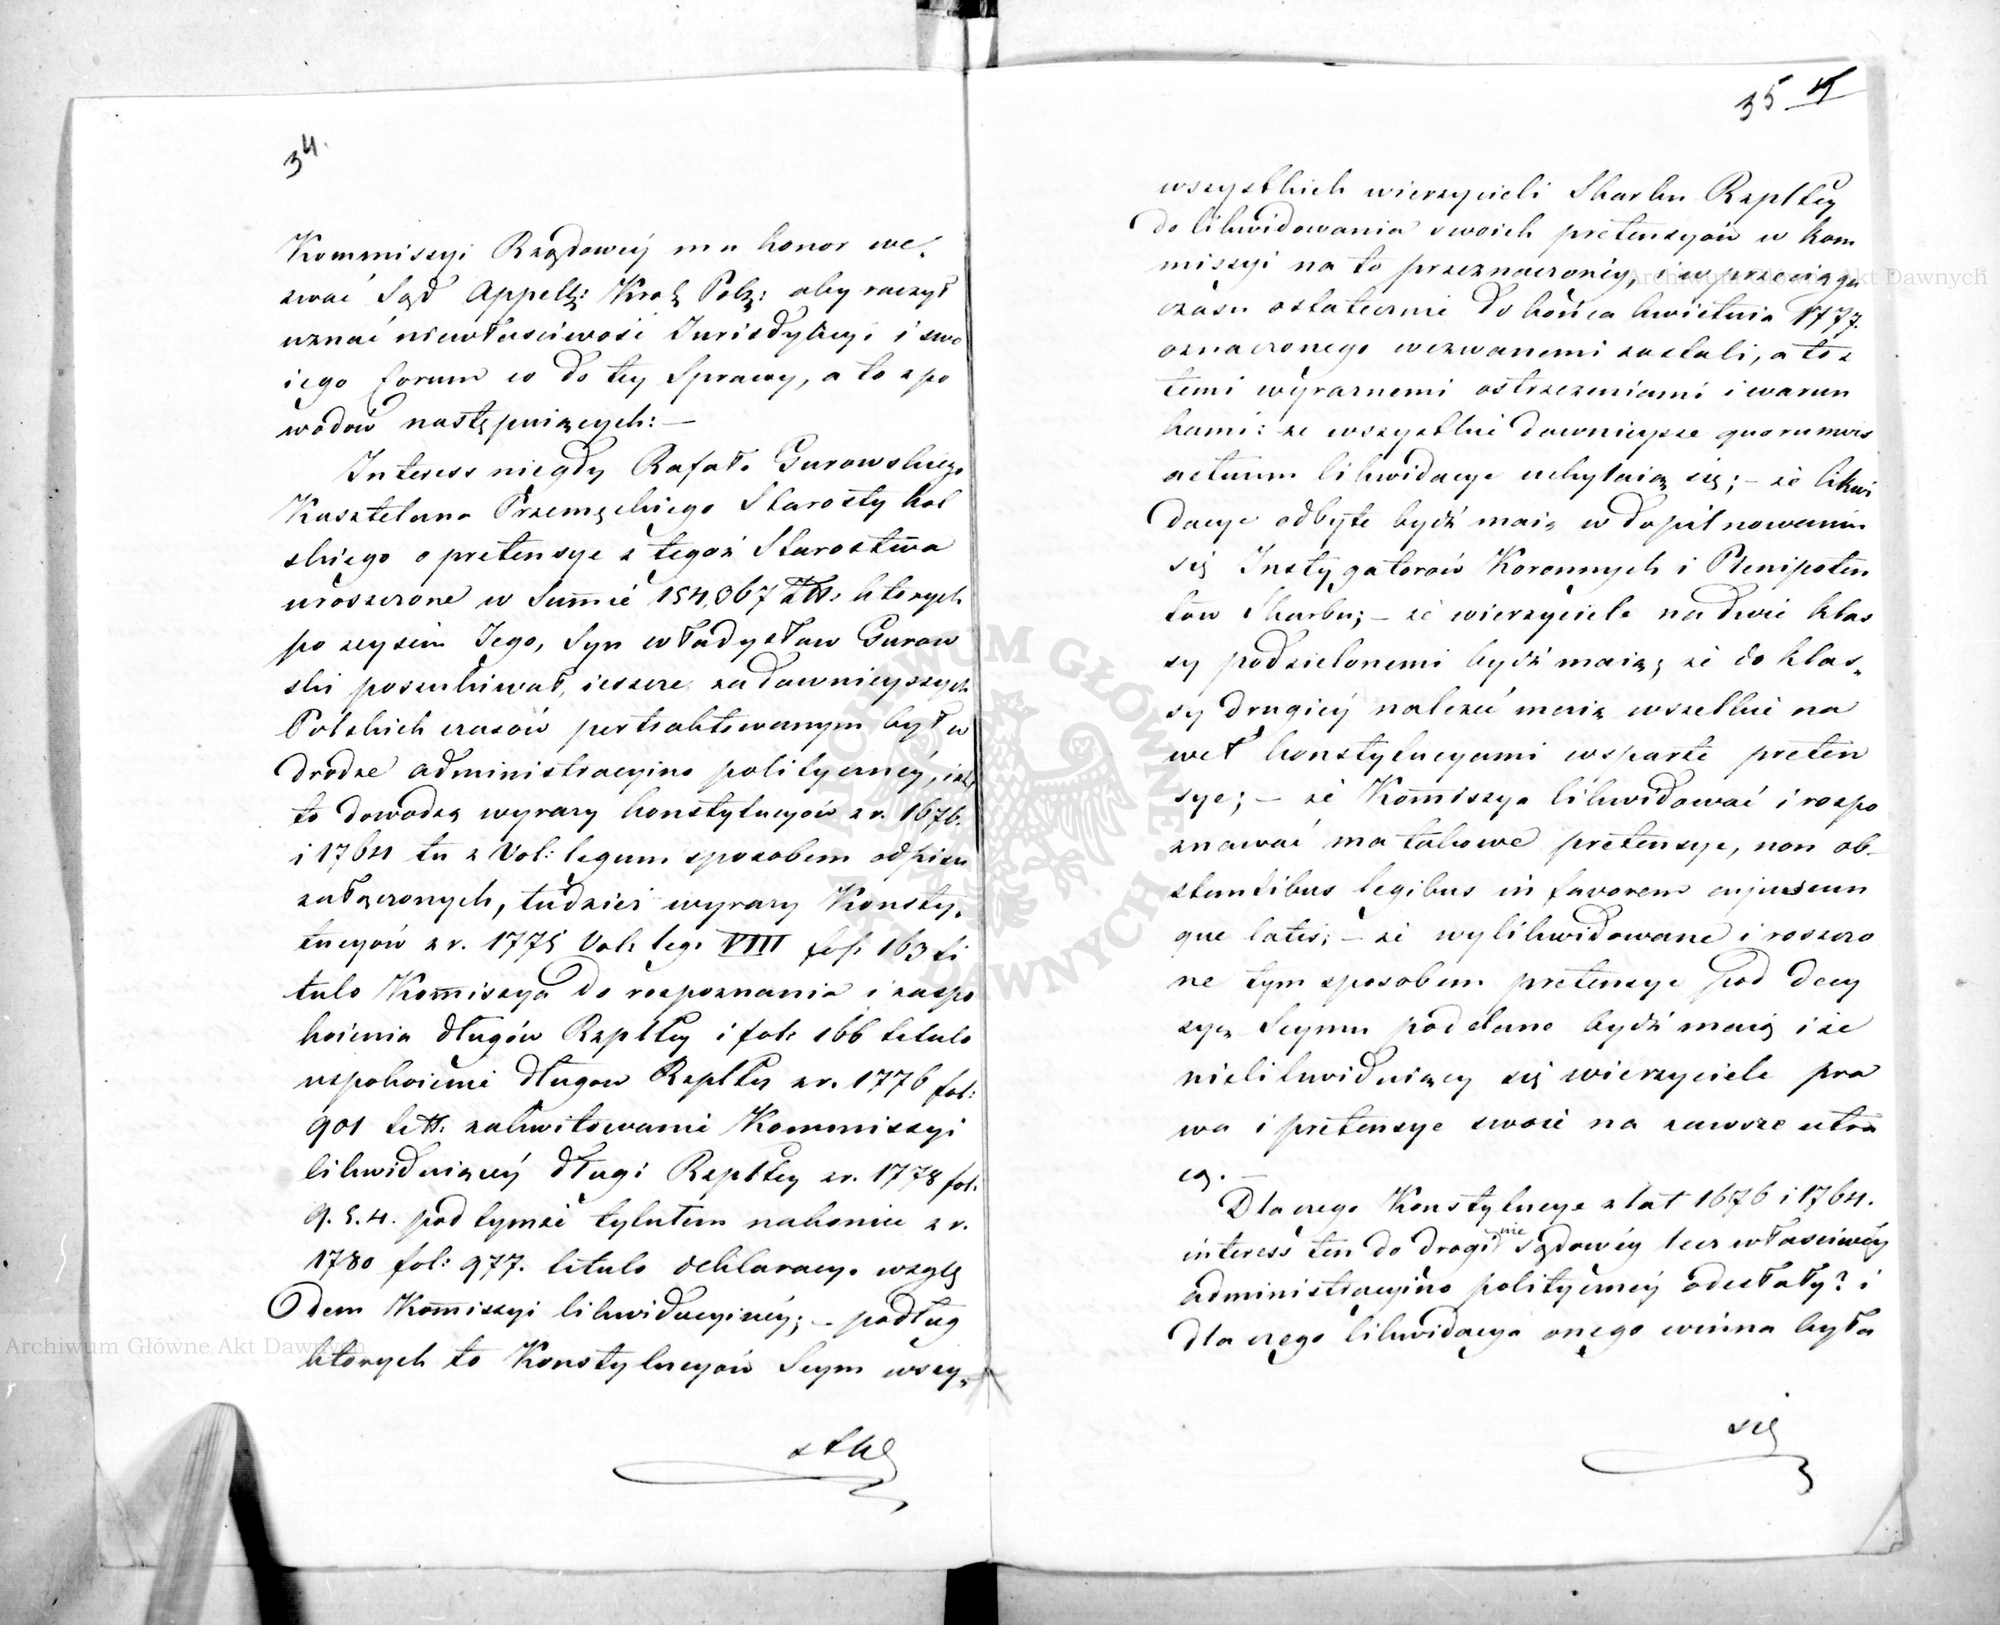 34.
Kommissyi Rządowéy ma honor we„
zwać Sąd Appell: Król: Pol: aby raczył
uznać niewłaściwość Jurisdykcyi i swo
iego forum w do tey Sprawy, a to z po
wodów następuiących: —
Interess niegdy Rafała Gurowskiego
Kasztelana Przemęckiego Starosty Kol
skiego o pretensye z tegoż Starostwa
uroszczone w Summie 154,367 Złł: których
po zeyściu Jego, Syn Władysław Gurow
ski poszukiwał, ieszcze za dawnieyszych
Polskich czasów pertraktowanym był w
drodze administracyino polityczney, iak
to dowodzą wyrazy konstytucyów z r. 1676.
i 1764 tu z Vol: legum sposobem odpisu
załączonych, tudzież wyrazy Konsty„
tucyów z r. 1775 Vol: leg: VIII fol: 163 ti
tulo Kommissya do rozpoznania i zaspo
koienia długów Rzpltey i fol: 166 titulo
uspokoienie długow Rzpltey z r. 1776 fol:
901 titt: zakwitowanie Kommissyi
likwiduiącéy długi Rzpltey z r. 1778 fol:
9.5.4. pod tymże tytułem nakoniec z r.
1780 fol: 977. titulo deklaracya wzglę
dem Kommissyi likwidacyinéy; — podług
ktorych to Konstytucyów Seym wszy„
stkę
35
wszystkich wierzycieli Skarbu Rzpltey
do likwidowania swoich pretensyów w kom
missyi na to przeznaczonéy, i w przeciągu
czasu ostatecznie do końca kwietnia 1777.
oznaczonego wezwanemi zostali, a to z
temi wyraznemi ostrzezeniami i warun
kami: że wszystkie dawnieysze quorumvis
actuum likwidacye uchylaią się; — że likwi
dacye odbyte bydź maią w dopilnowaniu
się Instygatorów Koronnych i Plenipoten
tów Skarbu; — że wierzyciele na dwie klas
sy podzielonemi bydź maią; że do klas„
sy drugiéy należeć maią wszelkie na
wet konstytucyami wsparte preten
sye; — że Kommissya likwidować i rozpo
znawać ma takowe pretensye, non ob„
stantibus legibus in favorem cujuscun
que latis; — że wylikwidowane i roszczo
ne tym sposobem pretensye pod decy
zyą Seymu poddane bydź maią i że
nielikwiduiący się wierzyciele pra
wa i pretensye swoie na zawsze utra
cą. —
Dla czego Konstytucye z lat 1676 i 1764.
interess ten do drogi nie sądowéy lecz właściwéy
administracyino polityczney odesłały? i
dla czego likwidacya onego winna była
się